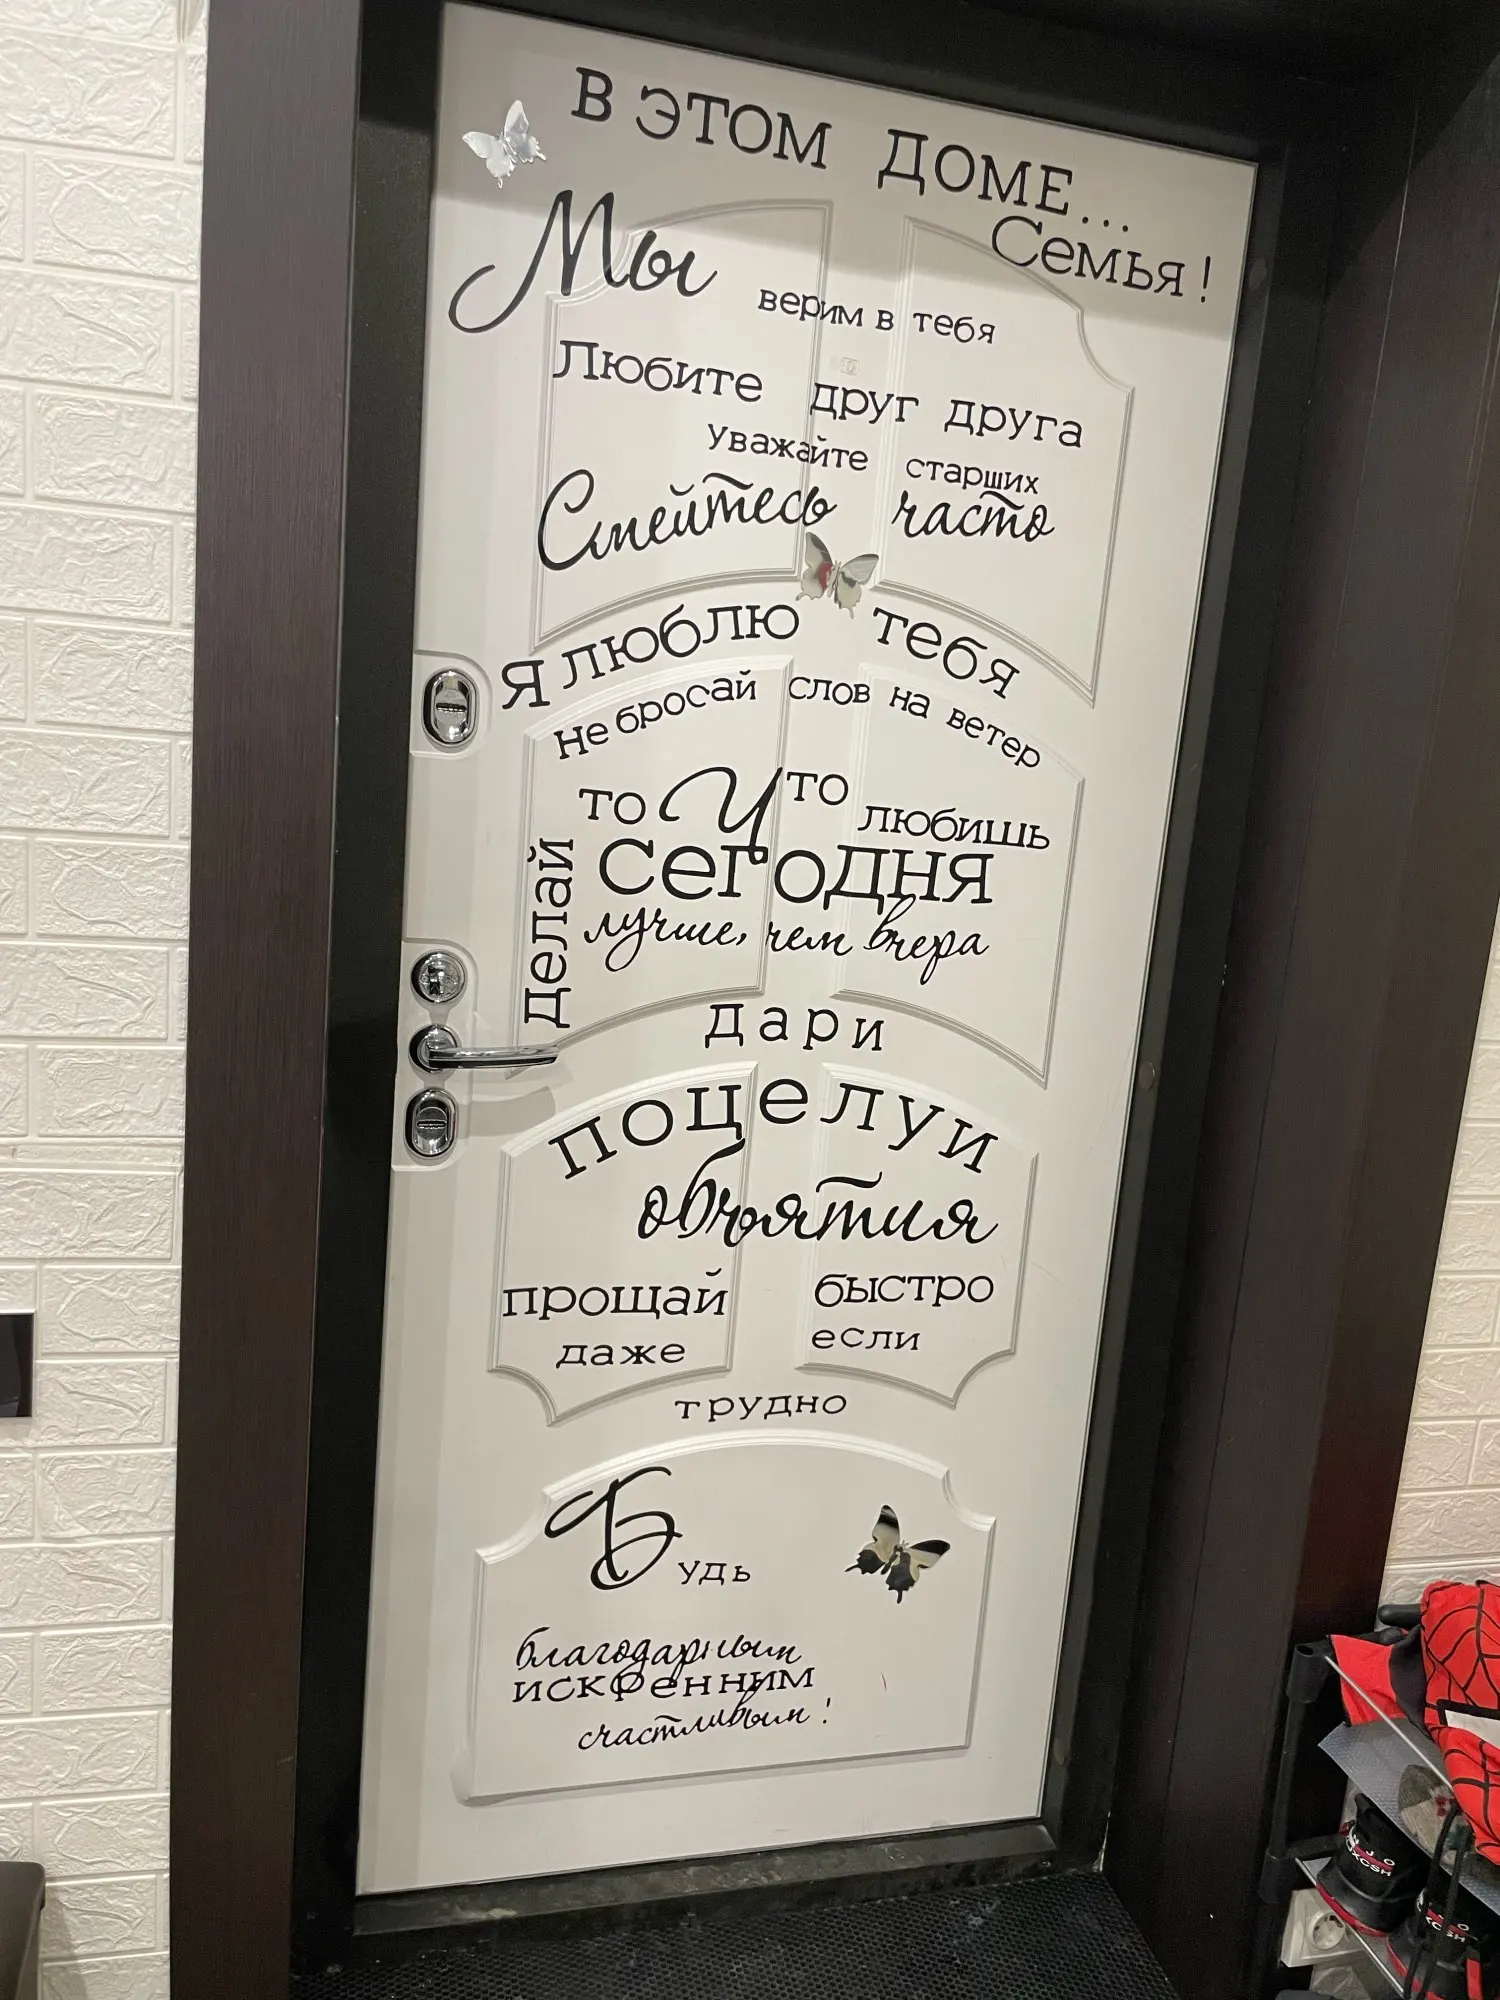 В ЭТОМ ДОМЕ...
Семья!
Мы верим в тебя
Любите друг друга
уважайте старших
Смейтесь часто
Я люблю тебя
Не бросай слов на ветер
Делай то что любишь
сегодня
лучше, чем вчера
дари
поцелуи
объятия
прощай быстро
даже если
трудно
Будь
благодарным
искренним
счастливым!